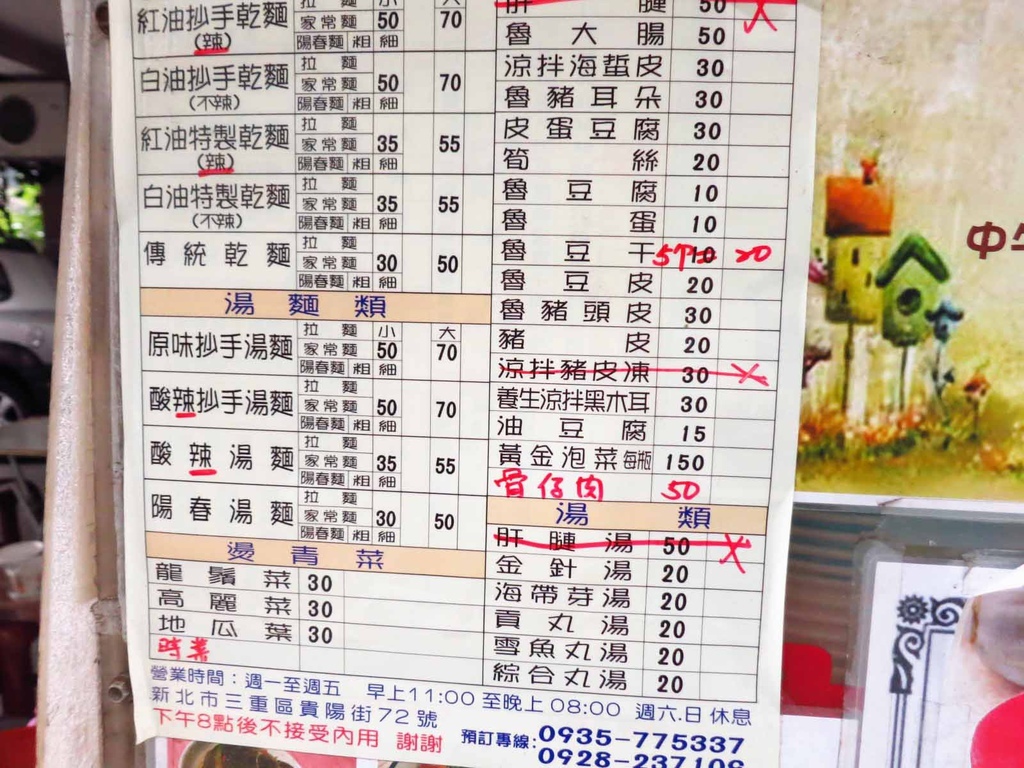 紅油抄手乾麵 拉麵 小 大
(辣) 家常麵 50 70
陽春麵 粗 細
白油抄手乾麵 拉麵
(不辣) 家常麵 50 70
陽春麵 粗 細
紅油特製乾麵 拉麵
(辣) 家常麵 35 55
陽春麵 粗 細
白油特製乾麵 拉麵
(不辣) 家常麵 35 55
陽春麵 粗 細
傳統乾麵 拉麵
家常麵 30 50
陽春麵 粗 細
湯麵類
原味抄手湯麵 拉麵 小 大
家常麵 50 70
陽春麵 粗 細
酸辣抄手湯麵 拉麵
家常麵 50 70
陽春麵 粗 細
酸辣湯麵 拉麵
家常麵 35 55
陽春麵 粗 細
陽春湯麵 拉麵
家常麵 30 50
陽春麵 粗 細
燙青菜
龍鬚菜 30
高麗菜 30
地瓜葉 30
時菜
肝腱 50 X
魯大腸 50
涼拌海蜇皮 30
魯豬耳朵 30
皮蛋豆腐 30
筍絲 20
魯豆腐 10
魯蛋 10
魯豆干 10 20
魯豆皮 20
魯豬頭皮 30
豬皮 20
涼拌豬皮凍 30 X
養生涼拌黑木耳 30
油豆腐 15
黃金泡菜每瓶 150
骨仔肉 50
湯類
肝腱湯 50 X
金針湯 20
海帶芽湯 20
貢丸湯 20
雪魚丸湯 20
綜合丸湯 20
營業時間：週一至週五 早上11:00 至晚上 08:00 週六.日 休息
新北市三重區貴陽街72號
下午8點後不接受內用 謝謝
預訂專線:0935-775337
0928-237106
中